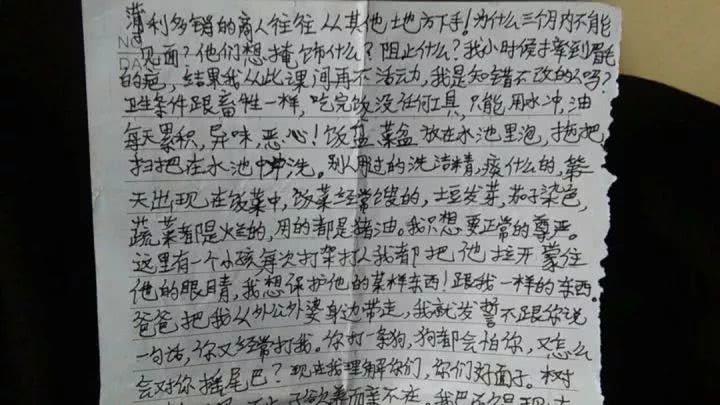 薄利多销的商人往往从其他地方下手！为什么三个月内不能
见面？他们想掩饰什么？阻止什么？我小时候手牵到眉毛
的疤，结果我从此课间再不活动，我是知错不改的人吗？
卫生条件跟畜牲一样，吃完饭没任何工具，只能用水冲，油
每天累积，异味，恶心！饭盆菜盆放在水池里泡，拖把，
扫把在水池中冲洗。别人用过的洗洁精，痰什么的，第
天出现在饭菜中，饭菜经常馊的，土豆发芽，茄子染色，
蔬菜都是烂的，用的都是猪油。我只想要正常的尊严。
这里有一个小孩每次打架打人我都把他拉开蒙住
他的眼睛，我想保护他的某样东西！跟我一样的东西。
爸爸把我从外公外婆身边带走，我就发誓不跟你说
一句话，你又经常打我。你打一条狗，狗都会怕你，又怎么
会对你摇尾巴？现在我理解你们，你们好面子。树
欲养而亲不在。我
NO
DA